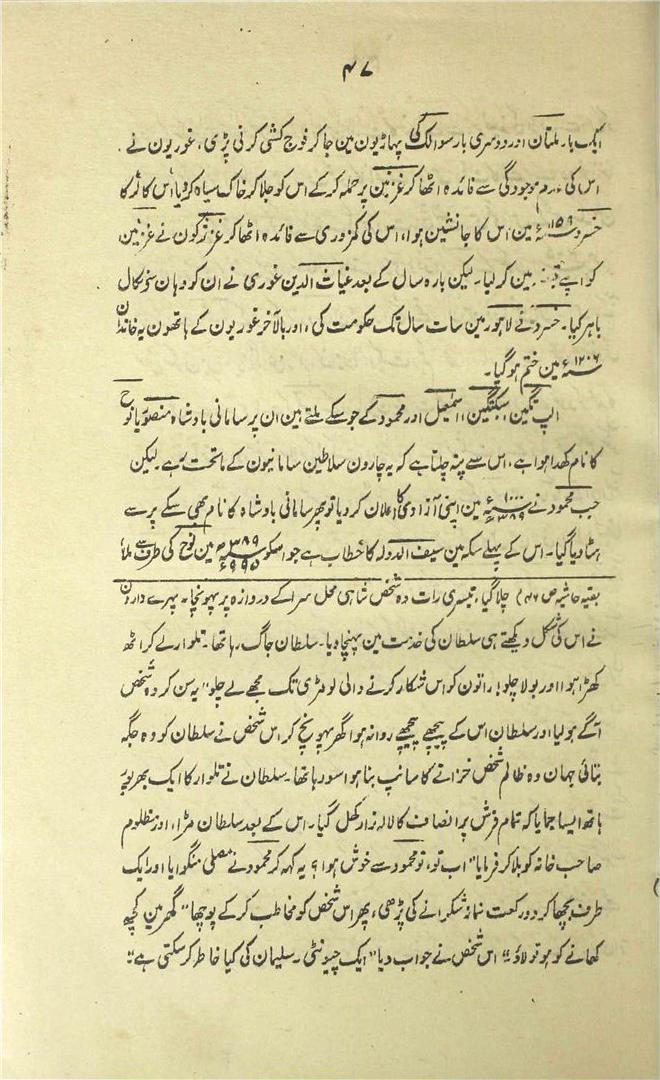 ۴۷
ایک بار ملتان اور دوسری بار سوالک کی پہاڑیون مین جا کر فوج کشی کرنی پڑی، غوریون نے
اس کی عدم موجودگی سے فائدہ اٹھا کر غزنین پر حملہ کر کے اس کو جلا کر خاک سیاہ کر دیا، اس کا لڑکا
خسرو ۱۱۵۲ء مین اس کا جانشین ہوا، اس کی کمزوری سے فائدہ اٹھا کر غزترکون نے غزنین
کو اپنے قبضہ مین کر لیا۔ لیکن بارہ سال کے بعد غیاث الدین غوری نے ان کو وہان سے نکال
باہر کیا۔ خسرو نے لاہور مین سات سال تک حکومت کی، اور بالآخر غوریون کے ہاتھون یہ خاندان
۱۲۰۶ء مین ختم ہو گیا۔
الپ تگین، سبکتگین، اسمٰعیل اور محمود کے جو سکے ملتے ہین ان پر سامانی بادشاہ منصور یا نوح
کا نام کھدا ہوا ہے، اس سے پتہ چلتا ہے کہ یہ چارون سلاطین سامانیون کے ماتحت رہے۔ لیکن
جب محمود نے ۱۰۰۰ء ۳۸۹ھ مین اپنی آزادی کا اعلان کر دیا تو پھر سامانی بادشاہ کا نام بھی سکے پر سے
ہٹا دیا گیا۔ اس کے پہلے سکہ مین سیف الدولہ کا خطاب ہے جو اسکو ۳۸۹ھ ۹۹۵ء مین نوح کی طرف سے ملا
بقیہ حاشیہ ص ۴۶) چلا گیا، تیسری رات وہ شخص شاہی محل سرا کے دروازہ پر پہونچا۔ پہرے دارون
نے اس کی شکل دیکھتے ہی سلطان کی خدمت مین پہنچا دیا۔ سلطان جاگ رہا تھا۔ تلوار لے کر اٹھ
کھڑا ہوا اور بولا چلو! راتون کو اس شکار کرنے والی لومڑی تک مجھے لے چلو" یہ سن کر وہ شخص
آگے ہو لیا اور سلطان اس کے پیچھے پیچھے روانہ ہوا گھر پہونچ کر اس شخص نے سلطان کو وہ جگہ
بتائی جہان وہ ظالم شخص خزانے کا سانپ بنا ہوا سو رہا تھا۔ سلطان نے تلوار کا ایک بھرپور
ہاتھ ایسا جمایا کہ تمام فرش پر انصاف کا لالہ زار کھل گیا۔ اس کے بعد سلطان مڑا، اور مظلوم
صاحب خانہ کو بلا کر فرمایا" اب تو، تو محمود سے خوش ہوا؟ یہ کہہ کر محمود نے مصلی منگوایا اور ایک
طرف بچھا کر دو رکعت نماز شکرانے کی پڑھی، پھر اس شخص کو مخاطب کر کے پوچھا" گھر مین کچھ
کھانے کو ہو تو لاؤ" اس شخص نے جواب دیا" ایک چیونٹی۔ سلیمان کی کیا خاطر کر سکتی ہے"